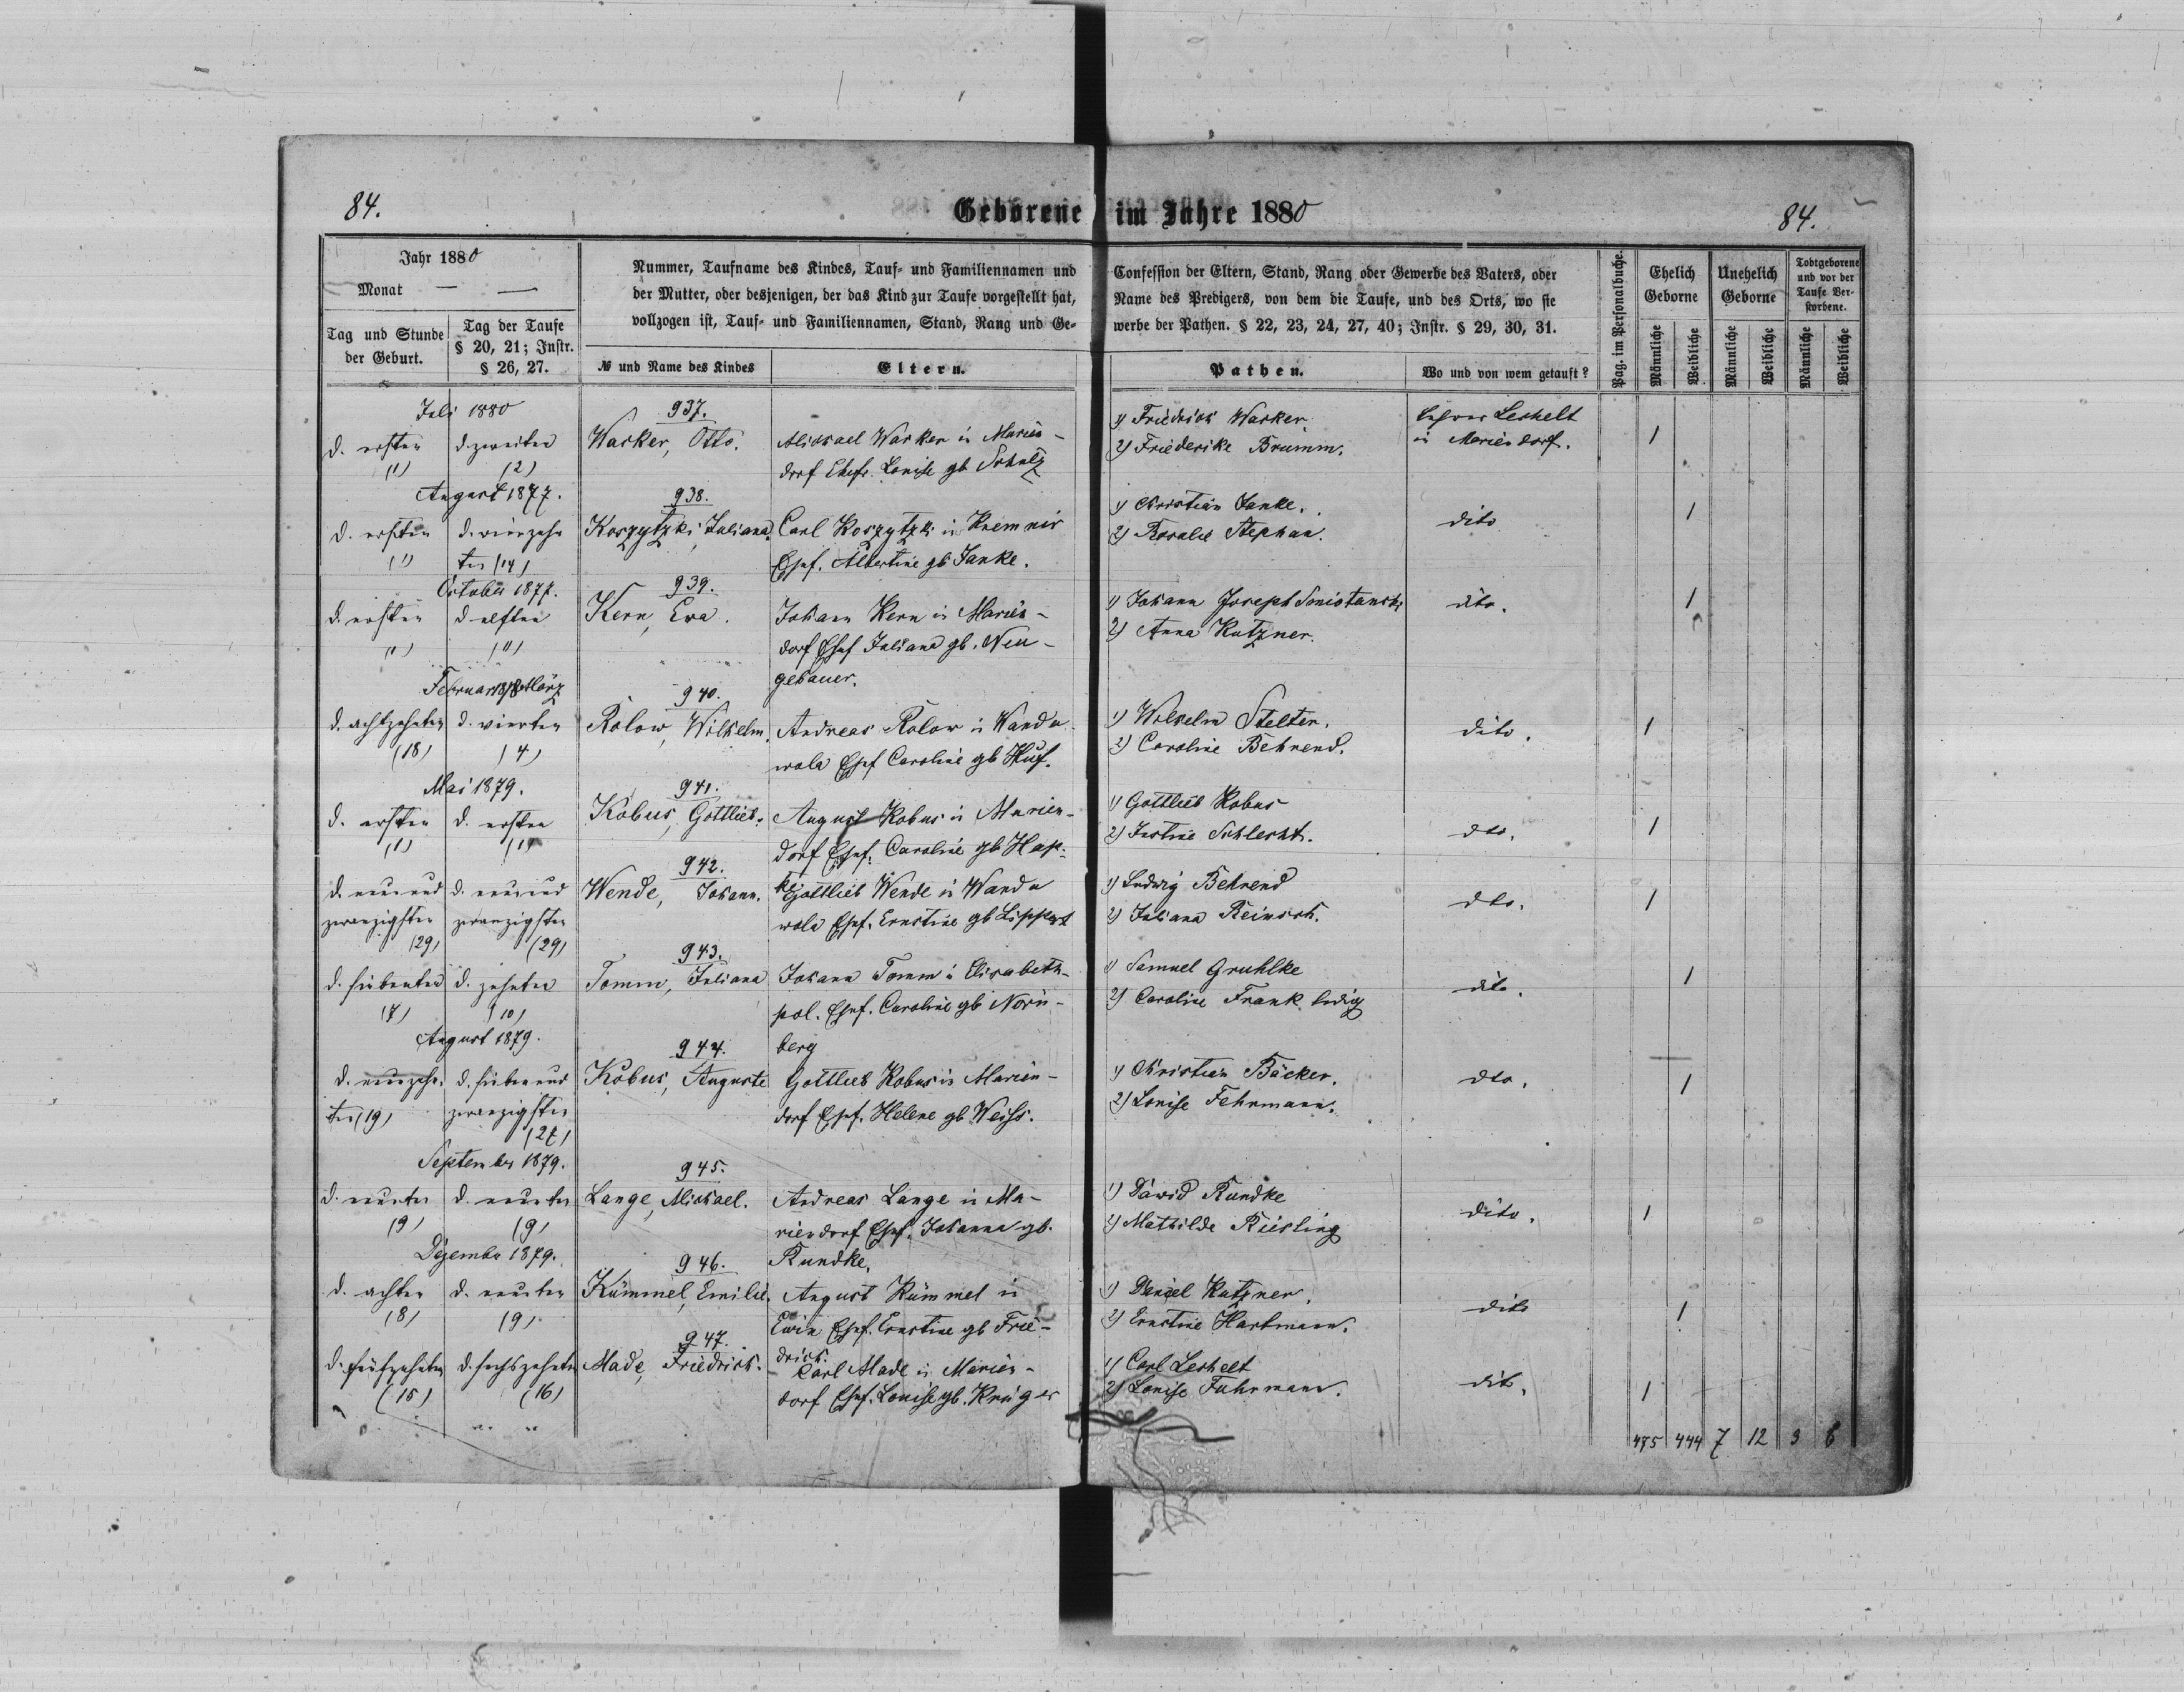 84.
Geborene im Jahre 1880
84.
Jahr 1880
Monat — —
Tag und Stunde der Geburt.
Tag der Taufe § 20, 21; Instr. § 26, 27.
Nummer, Taufname des Kindes, Tauf- und Familiennamen und
der Mutter, oder desjenigen, der das Kind zur Taufe vorgestellt hat,
vollzogen ist, Tauf- und Familiennamen, Stand, Rang und Ge-
№ und Name des Kindes
Eltern.
Confession der Eltern, Stand, Rang oder Gewerbe des Vaters, oder
Name des Predigers, von dem die Taufe, und des Orts, wo sie
werbe der Pathen. § 22, 23, 24, 27, 40; Instr. § 29, 30, 31.
Pathen.
Wo und von wem getauft?
Pag. im Personalbuche.
Ehelich Geborne
Unehelich Geborne
Todtgeborene und vor der Taufe Ver-storbene.
Männliche Weibliche Männliche Weibliche Männliche Weibliche
Juli 1880
937.
d. ersten d. zweiten Wasker, Otto. Michael Wasker in Marien-
(1) (2) dorf Ehefr. Louise gb Schulz
1) Friedrich Wasker.
2) Friederike Brumm.
Leshelt
in Mariendorf. 1
August 1877.
938.
d. ersten d. vierzehn Koszytzki, Juliana. Carl Koszytzki in
(1) ten (14) Ehef. Albertine gb Janke.
1) Christian Janke.
2) Rosalie Stephan.
dito 1
October 1877.
939.
d. ersten d elften Kern, Eva. Johann Kern in Marien-
(1) (11) dorf Ehef Juliana gb. Neu-
gebauer.
1) Johann Joseph
2) Anna Kutzner.
dito. 1
Februar 1878 März
940.
d. achtzehnten d. vierten Rolow, Wilhelm. Andreas Rolow in Wandu
(18) (4) wola Ehef Caroline gb Huf.
1) Wilhelm Stelter.
2) Caroline Behrend.
dito. 1
Mai 1879.
941.
d. ersten d. ersten Kobus, Gottlieb. August Kobus in Marien-
(1) (1) dorf Ehef. Caroline gb Hap-
ke
1) Gottlieb Kobus
2) Justine Schlecht.
dto. 1
942.
d. neunund d. neunund Wende, Johann. Gottlieb Wende in Wandu
zwanzigsten zwanzigsten wola Ehef. Ernstine gb Lippert
(29) (29)
1) Ludwig Behrend
2) Juliana Reinsch.
dto. 1
943.
d. siebenten d. zehnten Tomm, Juliana Johann Tomm in Elisabeth-
(7) (10) pol. Ehef. Caroline gb Norn-
berg
1) Samuel Gruhlke
2) Caroline Frank ledig
dito. 1
August 1879.
944.
d. neunzehn d. siebenund Kobus, Auguste Gottlieb Kobus in Marien-
ten (19) zwanzigsten dorf Ehef. Helene gb Weiss.
(27)
1) Christian Bäcker.
2) Louise Fehrmann.
dto. 1
September 1879.
945.
d. neunten d. neunten Lange, Michael. Andreas Lange in Ma-
(9) (9) riendorf Ehef. Johanna gb.
Rundke.
1) David Rundke
2) Mathilde Riesling
dito. 1
Dezember 1879.
946.
d. achten d. neunten Kümmel, Emilie. August Kümmel in
(8) (9) Ehef. Ernstine gb Frie-
drich.
1) Daniel Kutzner.
2) Ernstine Hartmann.
dito 1
947.
d. fünfzehnten d. sechszehnten Made, Friedrich. Carl Made in Marien-
(15) (16) dorf Ehef. Louise gb. Krüger
1) Carl Leshelt
2) Louise Fuhrmann.
dito. 1
475 444 7 12 3 6